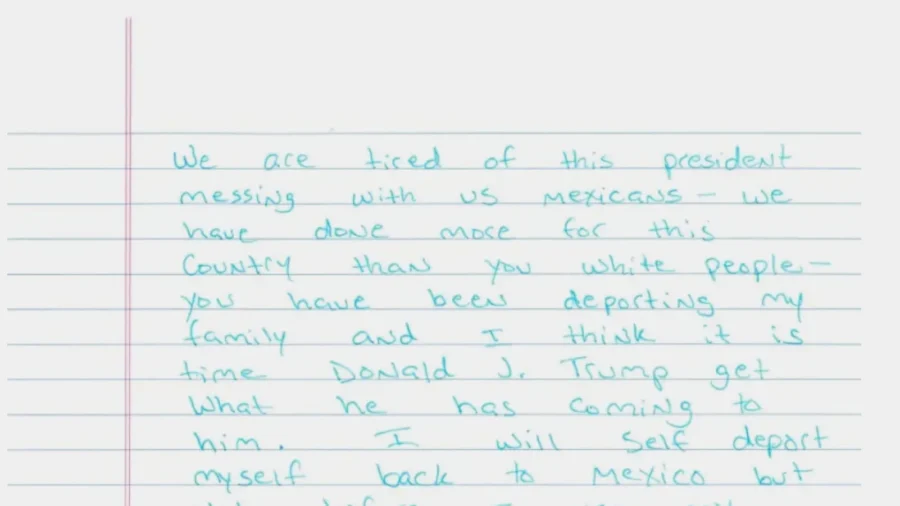 We are tired of this president
messing with us mexicans - we
have done more for this
Country than you white people -
you have been deporting my
family and I think it is
time Donald J. Trump get
what he has coming to
him. I will self deport
myself back to mexico but